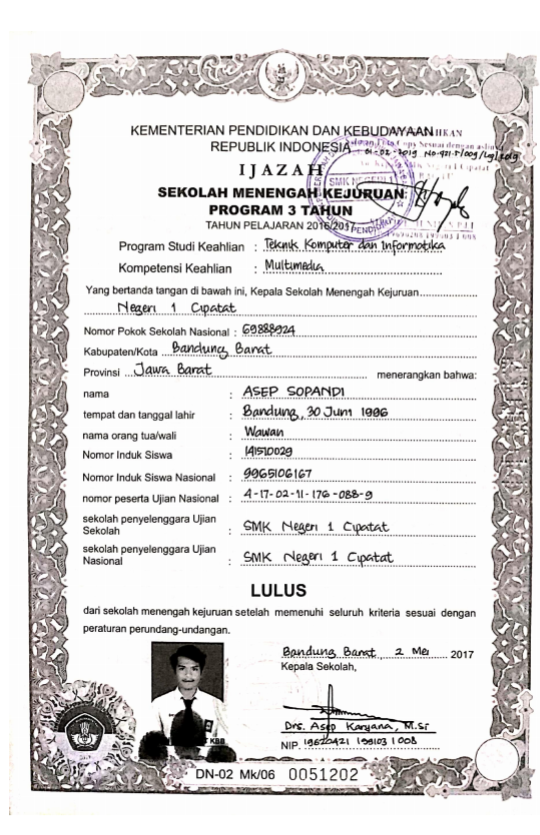 KEMENTERIAN PENDIDIKAN DAN KEBUDAYAAN
REPUBLIK INDONESIA
01-02-2019
IJAZAH
SMK NEGERI 1
SEKOLAH MENENGAH KEJURUAN
PROGRAM 3 TAHUN
TAHUN PELAJARAN 2016/2017
Program Studi Keahlian : Teknik Komputer dan Informatika
Kompetensi Keahlian : Multimedia
Yang bertanda tangan di bawah ini, Kepala Sekolah Menengah Kejuruan
Negeri 1 Cipatat
Nomor Pokok Sekolah Nasional : 69888924
Kabupaten/Kota Bandung Barat
Provinsi Jawa Barat menerangkan bahwa:
nama : ASEP SOPANDI
tempat dan tanggal lahir : Bandung, 30 Juni 1996
nama orang tua/wali : Wawan
Nomor Induk Siswa : 141510029
Nomor Induk Siswa Nasional : 9965106167
nomor peserta Ujian Nasional : 4-17-02-11-176-088-9
sekolah penyelenggara Ujian
Sekolah : SMK Negeri 1 Cipatat
sekolah penyelenggara Ujian
Nasional : SMK Negeri 1 Cipatat
LULUS
dari sekolah menengah kejuruan setelah memenuhi seluruh kriteria sesuai dengan
peraturan perundang-undangan.
Bandung Barat, 2 Mei 2017
Kepala Sekolah,
Drs. Asep Karyana, M.Si
NIP 19620421 199103 1 008
DN-02 Mk/06 0051202